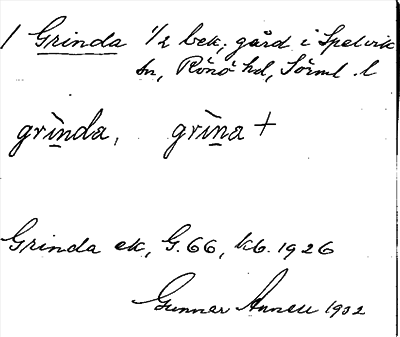 / Grinda 1/2 bek., gård i Spelvik
sn, Rönö hd, Sörml. l
grìn̲da, grìn̲a +
Grinda ek, G.66, kb. 1926
Gunnar 1932